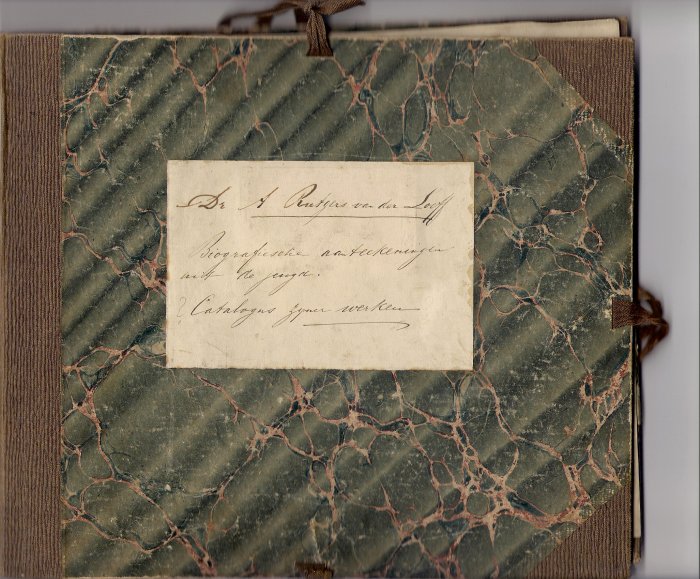 Dr A Rutgers van der Loeff
Biografische aanteekeningen
uit de jeugd.
Catalogus zijner werken